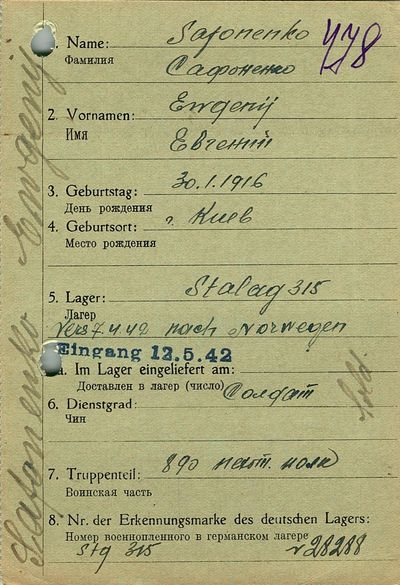 1. Name: Safonenko
778
Фамилия
Сафоненко
2. Vornamen: Ewgenij
Имя
Евгений
3. Geburtstag: 30.1.1916
День рождения
4. Geburtsort: г. Киев
Место рождения
5. Lager: Stalag 315
Лагер
Vers 7.4.42 nach Norwegen
Eingang 12.5.42
a. Im Lager eingeliefert am:
Доставлен в лагер (число)
6. Dienstgrad: Солдат
Чин
Sold
7. Truppenteil: 890 полк
Воинская часть
8. Nr. der Erkennungsmarke des deutschen Lagers:
Номер военнопленного в германском лагере
Stg 315
28288
Safonenko Ewgenij